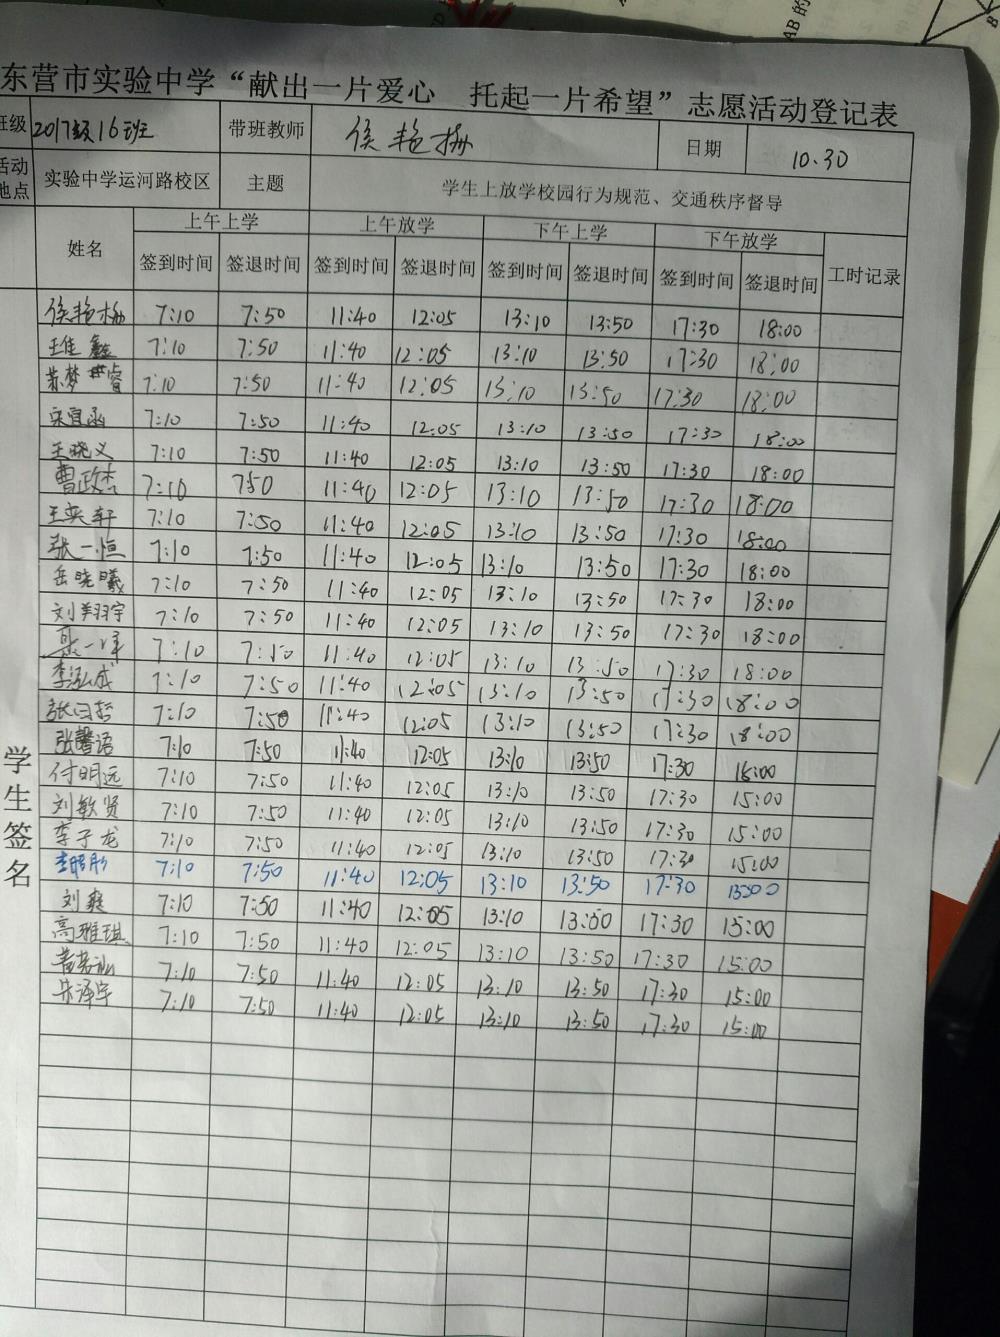 东营市实验中学“献出一片爱心 托起一片希望”志愿活动登记表
班级 2017级16班 带班教师 侯艳梅 日期 10.30
活动地点 实验中学运河路校区 主题 学生上放学校园行为规范、交通秩序督导
姓名 上午上学 上午放学 下午上学 下午放学 工时记录
签到时间 签退时间 签到时间 签退时间 签到时间 签退时间 签到时间 签退时间
学生签名
侯艳梅 7:10 7:50 11:40 12:05 13:10 13:50 17:30 18:00
王佳鑫 7:10 7:50 11:40 12:05 13:10 13:50 17:30 18:00
7:10 7:50 11:40 12:05 13:10 13:50 17:30 18:00
宋宜函 7:10 7:50 11:40 12:05 13:10 13:50 17:30 18:00
王晓义 7:10 7:50 11:40 12:05 13:10 13:50 17:30 18:00
曹政杰 7:10 750 11:40 12:05 13:10 13:50 17:30 18:00
王英轩 7:10 7:50 11:40 12:05 13:10 13:50 17:30 18:00
张一恒 7:10 7:50 11:40 12:05 13:10 13:50 17:30 18:00
岳晓曦 7:10 7:50 11:40 12:05 13:10 13:50 17:30 18:00
刘翔宇 7:10 7:50 11:40 12:05 13:10 13:50 17:30 18:00
7:10 7:50 11:40 12:05 13:10 13:50 17:30 18:00
李泓成 7:10 7:50 11:40 12:05 13:10 13:50 17:30 18:00
7:10 7:50 11:40 12:05 13:10 13:50 17:30 18:00
张馨语 7:10 7:50 11:40 12:05 13:10 13:50 17:30 15:00
付明远 7:10 7:50 11:40 12:05 13:10 13:50 17:30 15:00
刘敏贤 7:10 7:50 11:40 12:05 13:10 13:50 17:30 15:00
李子龙 7:10 7:50 11:40 12:05 13:10 13:50 17:30 15:00
7:10 7:50 11:40 12:05 13:10 13:50 17:30 15:00
刘爽 7:10 7:50 11:40 12:05 13:10 13:50 17:30 15:00
高雅琪 7:10 7:50 11:40 12:05 13:10 13:50 17:30 15:00
7:10 7:50 11:40 12:05 13:10 13:50 17:30 15:00
7:10 7:50 11:40 12:05 13:10 13:50 17:30 15:00